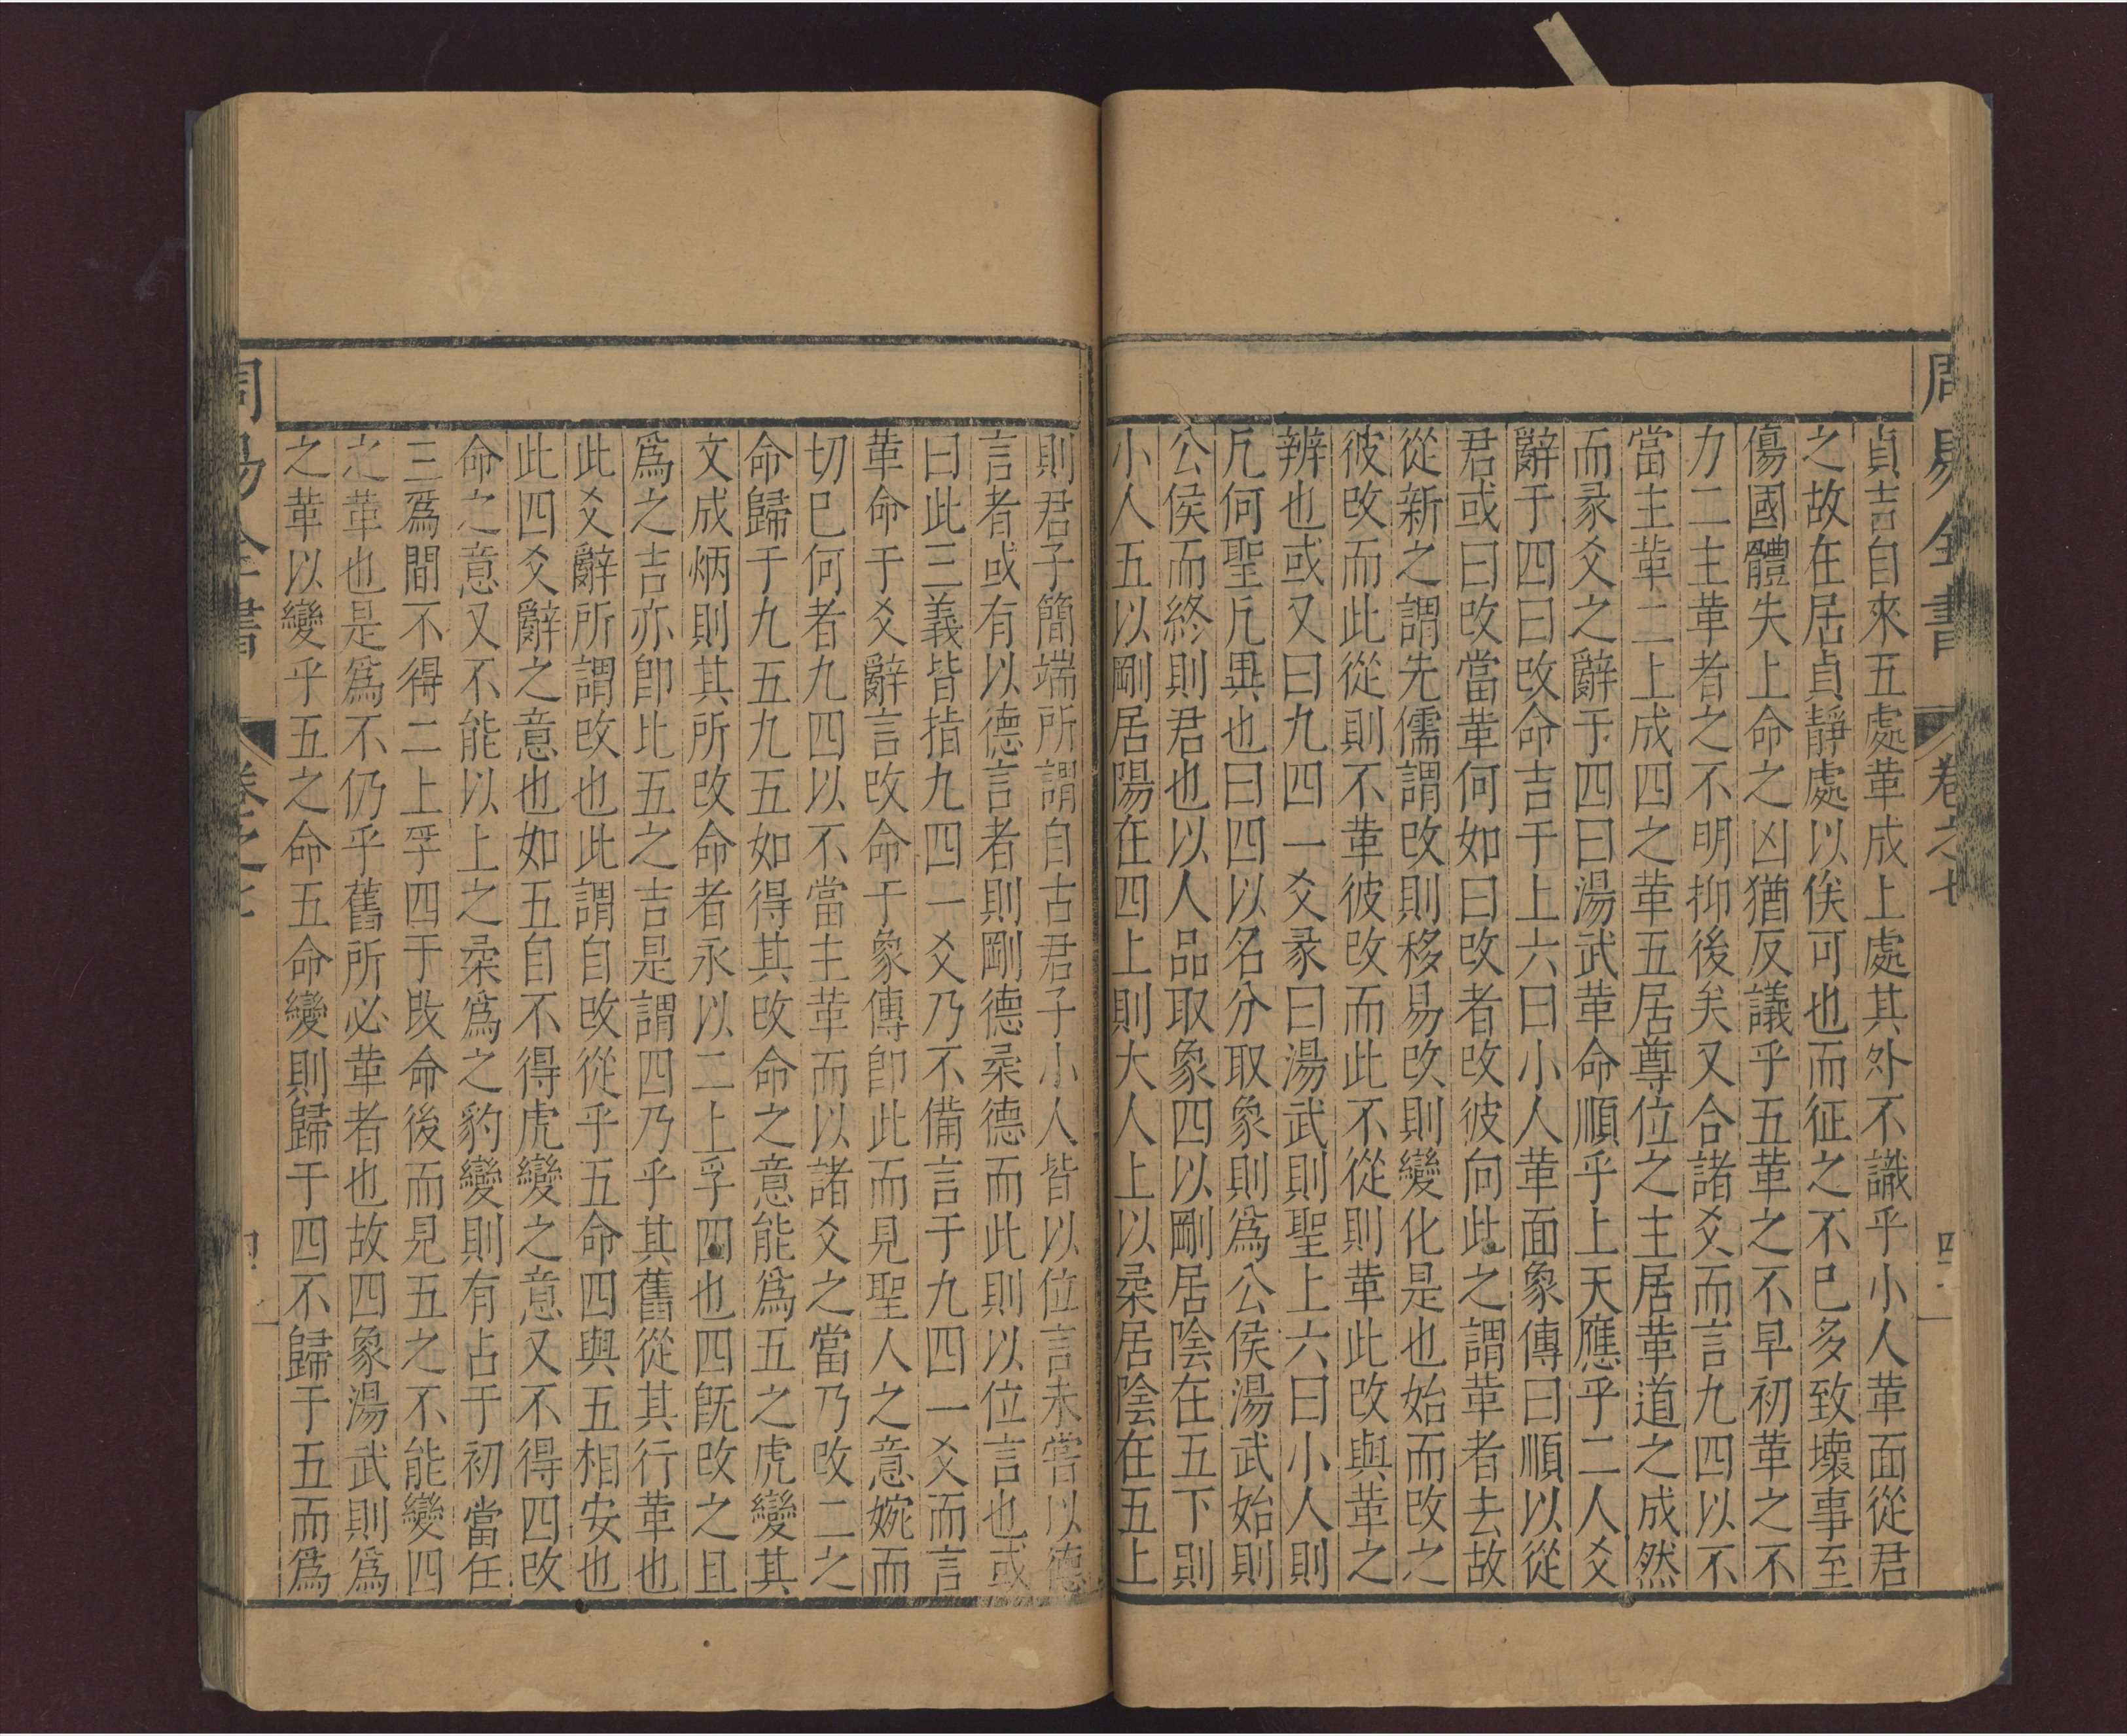 周易全書 卷之七
貞吉自來五處革成上處其外不識乎小人革面從君
之故在居貞靜處以俟可也而征之不已多致壞事至
傷國體失上命之凶猶反議乎五革之不早初革之不
力二主革者之不明抑後矣又合諸爻而言九四以不
當主革二上成四之革五居尊位之主居革道之成然
而彖爻之辭于四曰湯武革命順乎上天應乎二人爻
辭于四曰改命吉于上六曰小人革面象傳曰順以從
君或曰改當革何如曰改者改彼向此之謂革者去故
從新之謂先儒謂改則移易改則變化是也始而改之
彼改而此從則不革彼改而此不從則革此改與革之
辨也或又曰九四一爻彖曰湯武則聖上六曰小人則
凡何聖凡異也曰四以名分取象則爲公侯湯武始則
公侯而終則君也以人品取象四以剛居陰在五下則
小人五以剛居陽在四上則大人上以柔居陰在五上
則君子簡端所謂自古君子小人皆以位言未嘗以德
言者或有以德言者則剛德柔德而此則以位言也或
曰此三義皆指九四一爻乃不備言于九四一爻而言
革命于爻辭言改命于象傳卽此而見聖人之意婉而
切已何者九四以不當主革而以諸爻之當乃改二之
命歸于九五九五如得其改命之意能爲五之虎變其
文成炳則其所改命者永以二上孚四也四旣改之且
爲之吉亦卽比五之吉是謂四乃乎其舊從其行革也
此爻辭所謂改也此謂自改從乎五命四與五相安也
此四爻辭之意也如五自不得虎變之意又不得四改
命之意又不能以上之柔爲之豹變則有占于初當任
三爲間不得二上孚四于改命後而見五之不能變四
之革也是爲不仍乎舊所必革者也故四象湯武則爲
之革以變乎五之命五命變則歸于四不歸于五而爲
周易全書